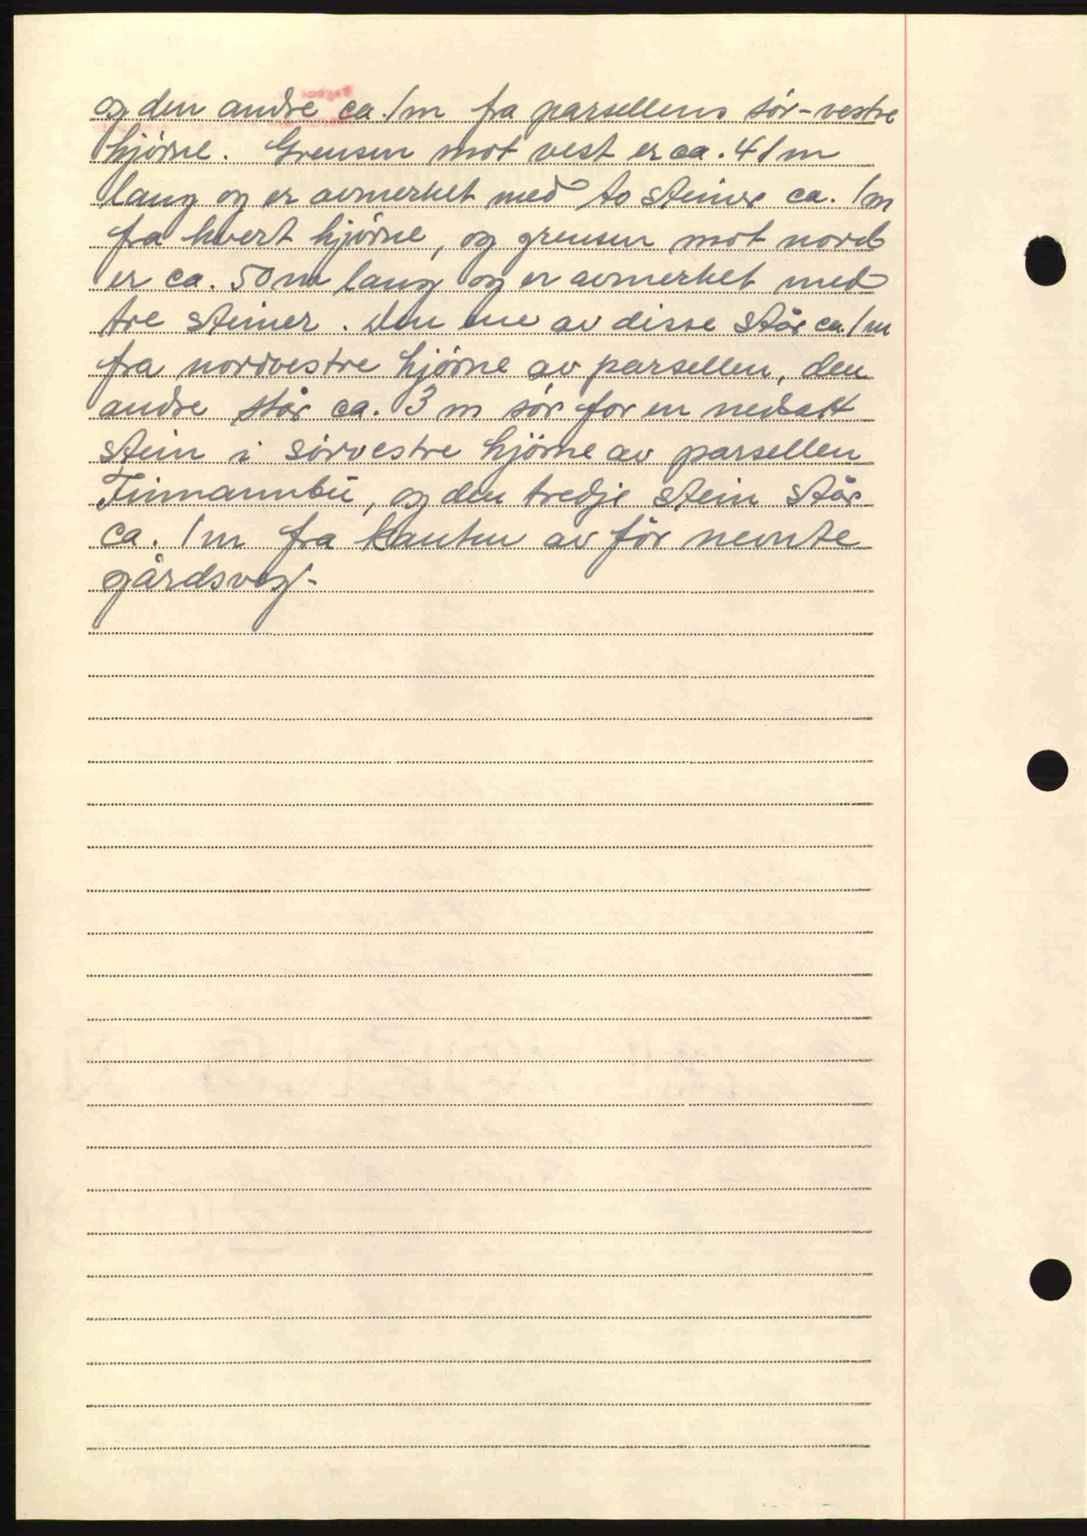 og den andre ca. 1m fra parsellens sør-vestre
hjørne. Grensen mot vest er ca. 41m
lang og er avmerket med to steiner ca. 1m
fra hvert hjørne, og grensen mot nord
er ca. 50m lang og er avmerket med
tre steiner. Den ene av disse står ca. 1m
fra nordvestre hjørne av parsellen, den
andre står ca. 3 m sør for en nedsatt
stein i sørvestre hjørne av parsellen
Finmannbu, og den tredje stein står
ca. 1m fra kanten av før nevnte
gårdsveg.-